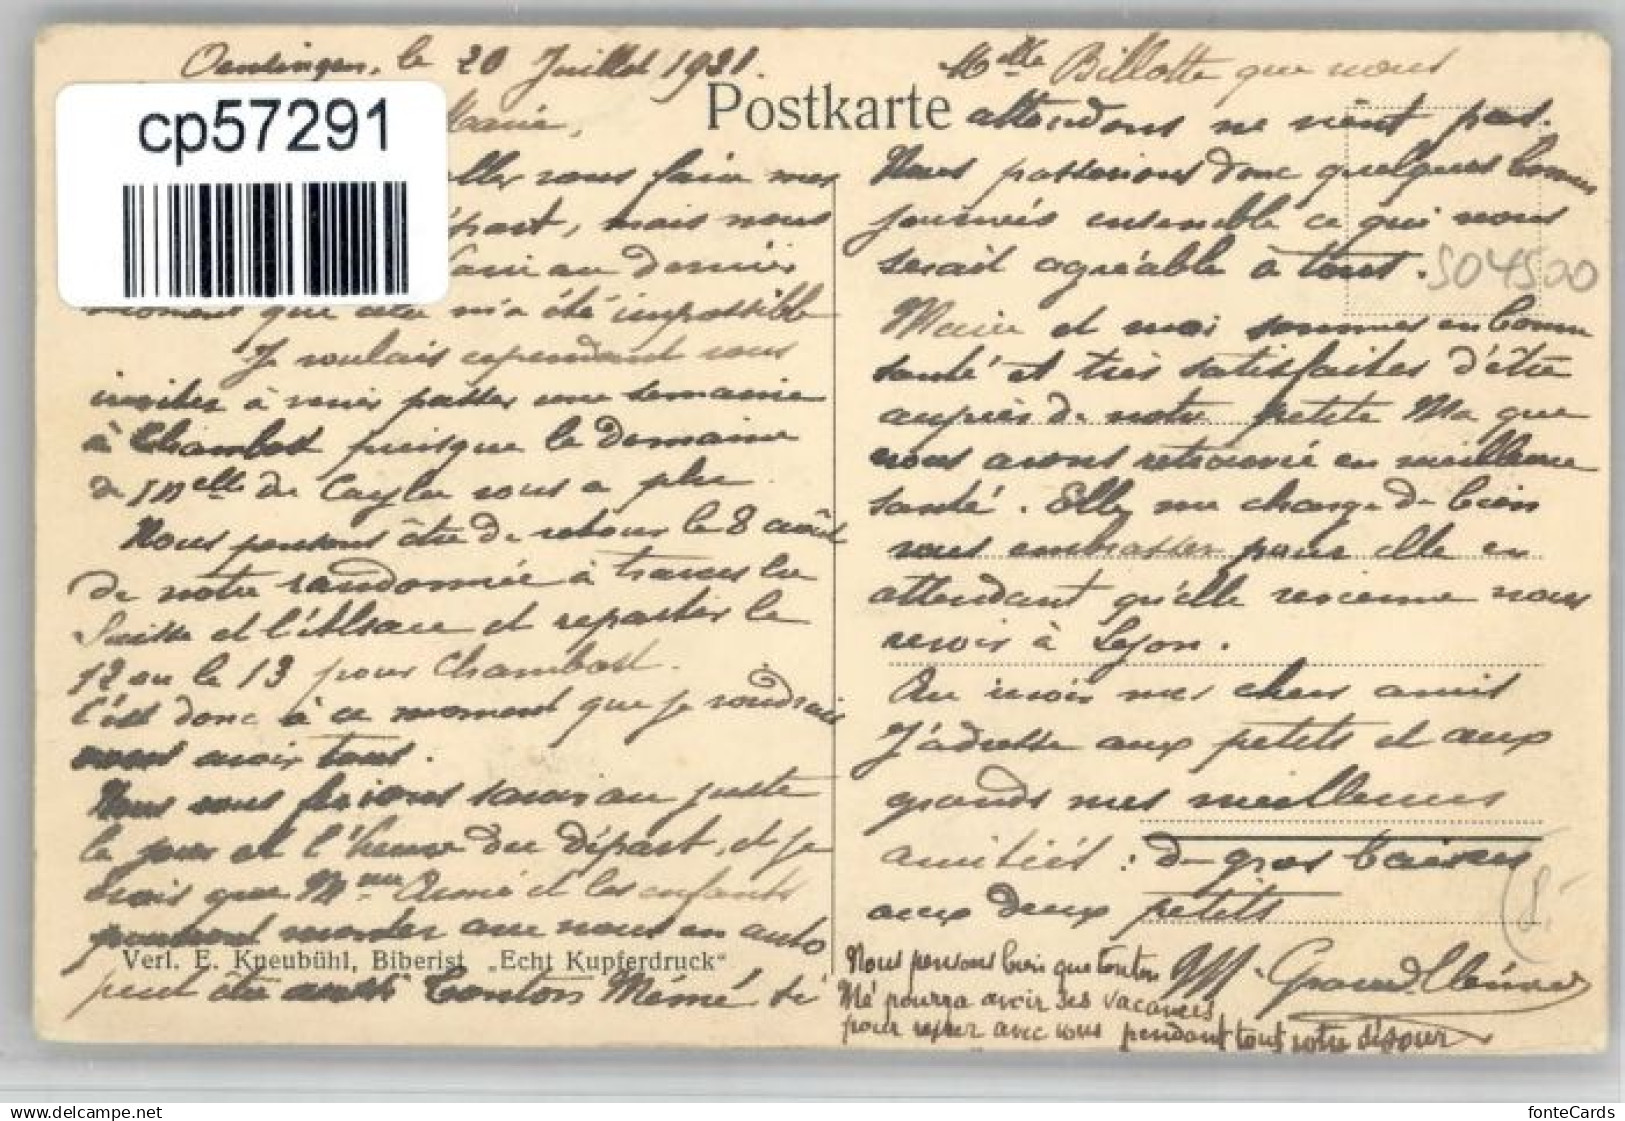 Oensingen, le 20 Juillet 1931.
cp57291
Marie,
aller vous faire mes
départ, mais nous
au dernier
moment que cela m'a été impossible
Je voulais cependant vous
inviter à venir passer une semaine
à Chambost puisque le Domaine
de Melle du Cayla vous a plu
Nous pensons être de retour le 8 août
de notre randonnée à travers la
Suisse et l'Alsace et repartir le
12 ou le 13 pour Chambost.
C'est donc à ce moment que je voudrais
vous avoir tous.
Nous vous ferions savoir au juste
le jour et l'heure du départ, et je
crois que Mme Aimé et les enfants
pourront monter avec nous en auto
Verl. E. Kneubühl, Biberist „Echt Kupferdruck“
peut être aussi Tonton Mémé si
Postkarte
Melle Billotte que nous
attendons ne vient pas.
Nous passerions donc quelques bonnes
journées ensemble ce qui nous
serait agréable à tous.
504500
Marie et moi sommes en bonne
santé et très satisfaites d'être
auprès de notre petite Ma que
nous avons retrouvée en meilleure
santé. Elle me charge de bien
vous embrasser pour elle en
attendant qu'elle revienne nous
revoir à Lyon.
Au revoir mes chers amis
J'adresse aux petits et aux
grands mes meilleures
amitiés : de gros baisers
aux deux petits
M. Grand
Nous pensons bien que tonton
Mé pourra avoir ses vacances
pour rester avec vous pendant tout votre séjour
www.delcampe.net
fonteCards